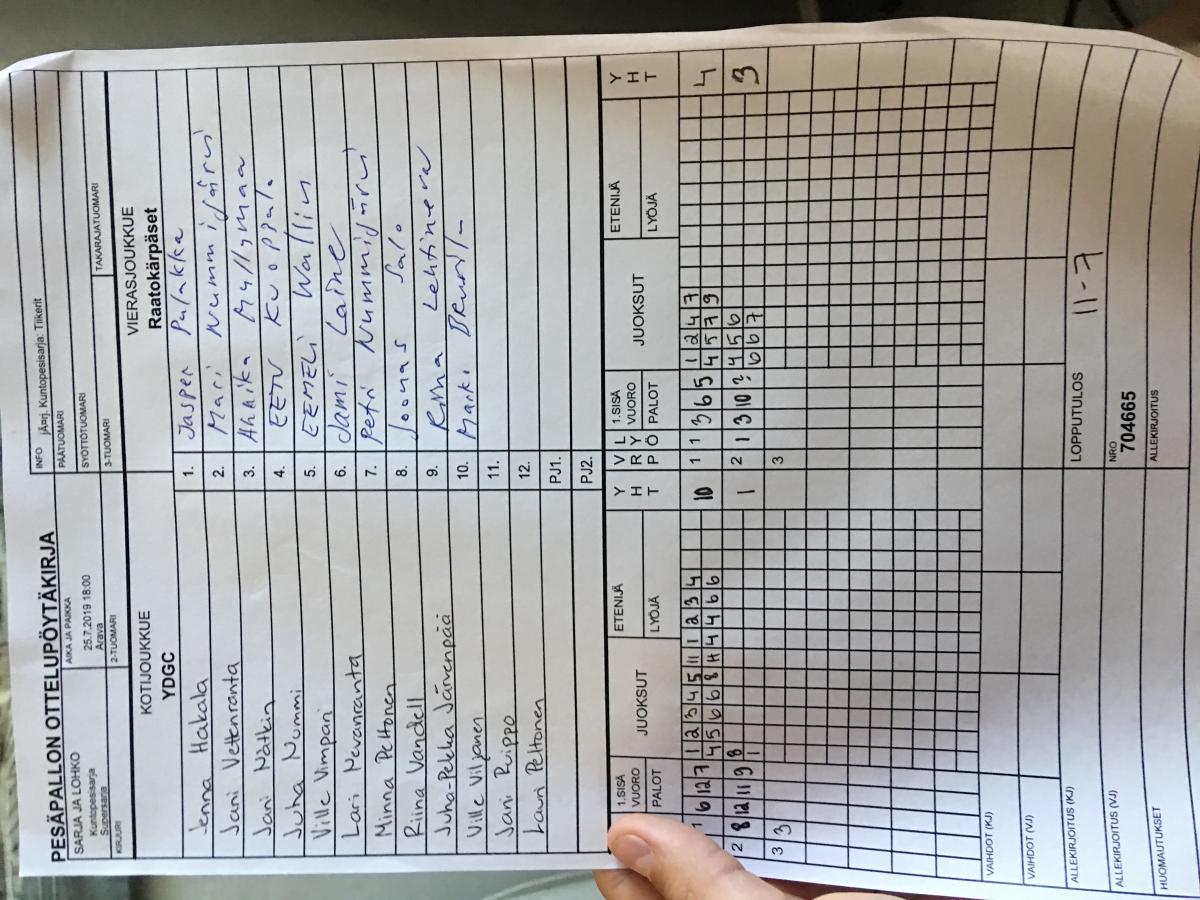 PESÄPALLON OTTELUPÖYTÄKIRJA
SARJA JA LOHKO
Kuntopesisarja
Supersarja
AIKA JA PAIKKA
25.7.2019 18:00
Arava
INFO jÄ¤rj. Kuntopesisarja: Tiikerit
PÄÄTUOMARI
SYÖTTÖTUOMARI
KIRJURI
2-TUOMARI
3-TUOMARI
TAKARAJATUOMARI
KOTIJOUKKUE
YDGC
VIERASJOUKKUE
Raatokärpäset
Jenna Hakala 1. Jasper Pulakka
Jani Vettenranta 2. Mari Nummijärvi
Jani Nätkin 3. Annika Myllymaa
Juha Nummi 4. EETU Kuoppala
Ville Vimpari 5. EEMELI Wallin
Lari Nevanranta 6. Jami Laine
Minna Peltonen 7. Petri Nummijärvi
Riina Vandell 8. Joonas Salo
Juha-Pekka Järvenpää 9. Lehtineva
Ville Viljanen 10.
Jani Puippo 11.
Lauri Peltonen 12.
PJ1.
PJ2.
1.SISÄ VUORO PALOT JUOKSUT ETENIJÄ LYÖJÄ YHT VRP LYÖ 1.SISÄ VUORO PALOT JUOKSUT ETENIJÄ LYÖJÄ YHT
1 2 3 4 5 11 1 2 3 4
6 12 7 4 5 6 6 8 11 4 4 6 6 10 1 1 3 6 5
1 2 4 7
4 5 7 9
4
2 8 12 11 9 8
1
1 2 1 3 10 2
4 5 6
6 6 7
3
3 3 3
VAIHDOT (KJ)
VAIHDOT (VJ)
ALLEKIRJOITUS (KJ)
LOPPUTULOS 11-7
ALLEKIRJOITUS (VJ)
NRO
704665
HUOMAUTUKSET
ALLEKIRJOITUS